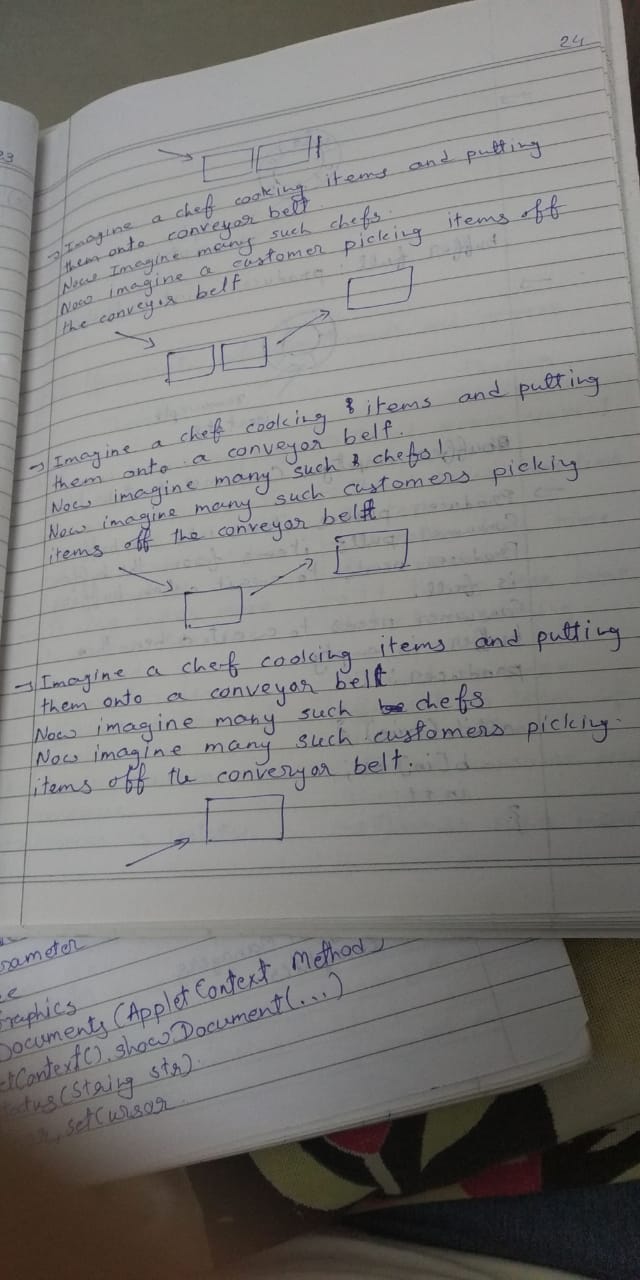 24
23
→ Imagine a chef cooking items and putting
them onto conveyor belt
Now Imagine many such chefs.
Now imagine a customer picking items off
the conveyor belt
→ Imagine a chef cooking items and putting
them onto a conveyor belt.
Now imagine many such chefs!
Now imagine many such customers pickiy
items off the conveyor belt
→ Imagine a chef cooking items and putting
them onto a conveyor belt
Now imagine many such chefs
Now imagine many such customers picking
items off the converyor belt.
rameter
e
raphics
Documents (Applet Context Method)
etContext(). show Document(...)
tatus (String str)
r, setCursor